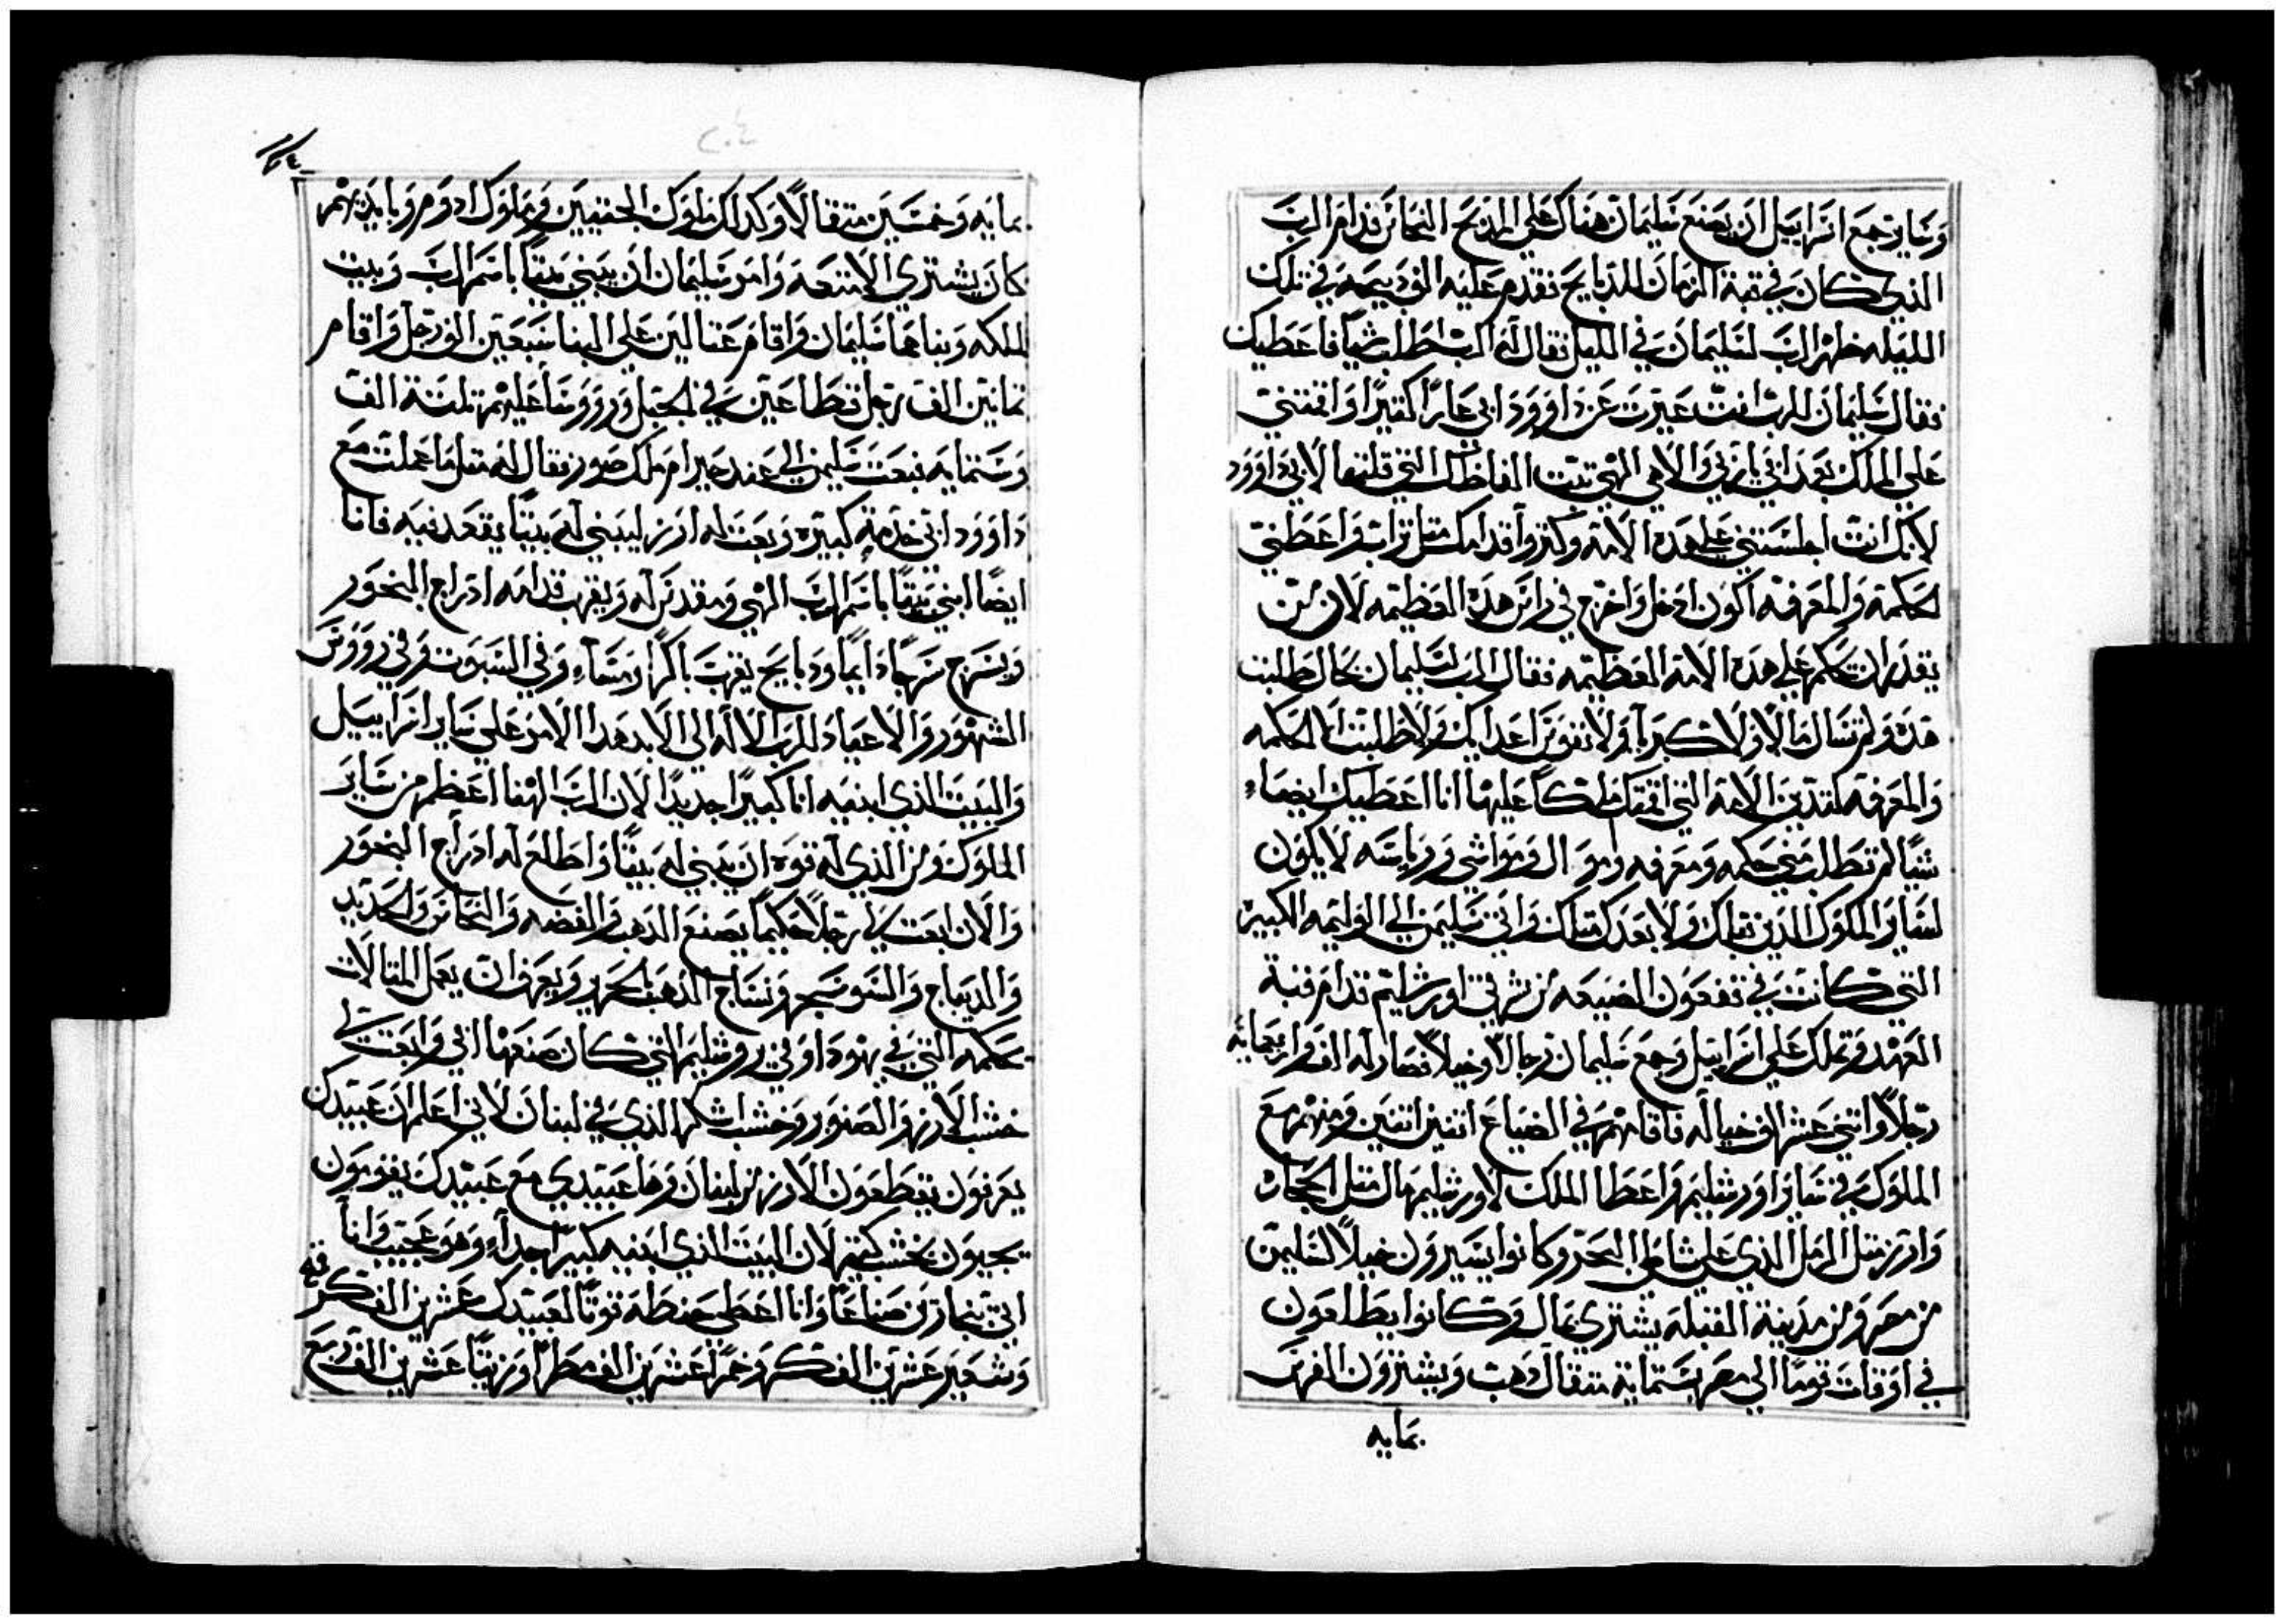 وساير جمع اسراييل ان يصنع سليمان هناك علي المدبح النحاس قدام الرب
الذي كان في قبة الزمان للدبايح فقدم عليه الف دبيحه في تلك
الليله ظهر الرب لسليمان في الليل فقال له الرب اطلب شياً فاعطيك
فقال سليمان للرب انت عبرت عن داوود ابي عاراً كتيراً واقمتني
علي الملك بعد ابي يا ربي والاهي الهي تبت الفاظك التي قلتها لابي داوود
لانك انت اجلستني علي هده الامة وكتر واقداك متل تراب واعطني
حكمة والمعرفة اكون ادخل واخرج في راس هده العظيمه لان من
يقدر ان يحكم علي هده الامة العظيمه فقال الرب لسليمان بحال طلبت
هده ولم تسال مالاً ولا كبرياً ولا نفوس اعداك ولا طلبت الا الحكمه
والمعرفة لتدين الامة التي اقمتك ملكاً عليها انا اعطيك ايضاً
شياً لم تطلب مني حكمه ومعرفه واموال ومواشي ورياسه لا يكون
لساير الملوك الدين قبلك ولا بعدك متلك واتي سليمن الي الوليمه الكبيره
التي كانت في قفعون الضيعه من شرقي اورشليم قدام قبة
العهد وتملك علي اسراييل وجمع سليمان رجالاً وخيلاً فصار له الف واربعمايه
رجلاً واتني عشر الف خياله فاقامهم في الضياع اتنين اتنين ومنهم مع
الملوك في ساير اورشليم واعطا الملك لاورشليم مال متل الحجاره
وارز متل الرمل الذي علي شاطي البحر وكانوا يسيرون خيلاً لسليمن
من مصر ومن مدينة القبله يشتري بمال وكانوا يطلعون
في اوقات توما الي مصر بستماية متقال دهب ويشترون الفرس
بمايه
بمايه وخمسين متقالاً وكدلك ملوك الحتيين وملوك ادوم وبايديهم
كان يشتري الامتعه وامر سليمان ان يبني بيتاً باسم الرب وبيت
للملكه وبناهما سليمان واقام عتالين علي البنا سبعين الف رجل واقام
تمانين الف رجل قطاعين في الجبل ورووسا عليهم تلتة الف
وستمايه فبعت سليمن الي عند حيرام ملك صور فقال له متل ما عملت مع
داوود ابي خدمة كبيره وبعت له ارز ليبني له بيتاً يقعد فيه فانا
ايضاً ابني بيتاً باسم الرب الهي ومقدس له ويقرب قدامه ادراج البخور
ويسرج سرجاً دايماً ودبايح يقرب باكراً ومساء وفي السبوت وفي رووس
الشهور والاعياد للرب الاله الي الابد هدا الامر علي ساير اسراييل
والبيت الذي ابنيه انا كبيراً جديداً لان الرب الهنا اعظم من ساير
الملوك ومن الذي له قوه ان يبني له بيتاً واطلع له ادراج البخور
والان ابعت لي رجلاً حكيماً يصنع الدهب والفضه والنحاس والحديد
والديباج والسوسجر ونساج الدهب الحرير ويعرف ان يعمل المتالات
حكمه التي في يهودا وفي روشليم التي كان صنعها ابي وابعت لي
خشب الارز والصنوبر وخشب اشكر الذي في لبنان لاني اعلم ان عبيدك
يعرفون يقطعون الارز من لبنان وها عبيدي مع عبيدك يقومون
يجيبون خشب كتير لان البيت الذي ابنيه كبيراً جداً وهو عجيب وانا
اتي بنجارين صناعاً وانا اعطي حنطه قوتاً لعبيدك عشرين الف كر قمح
وشعير عشرين الف كر وخمراً عشرين الف مطراً وزيتاً عشرين الف ومع